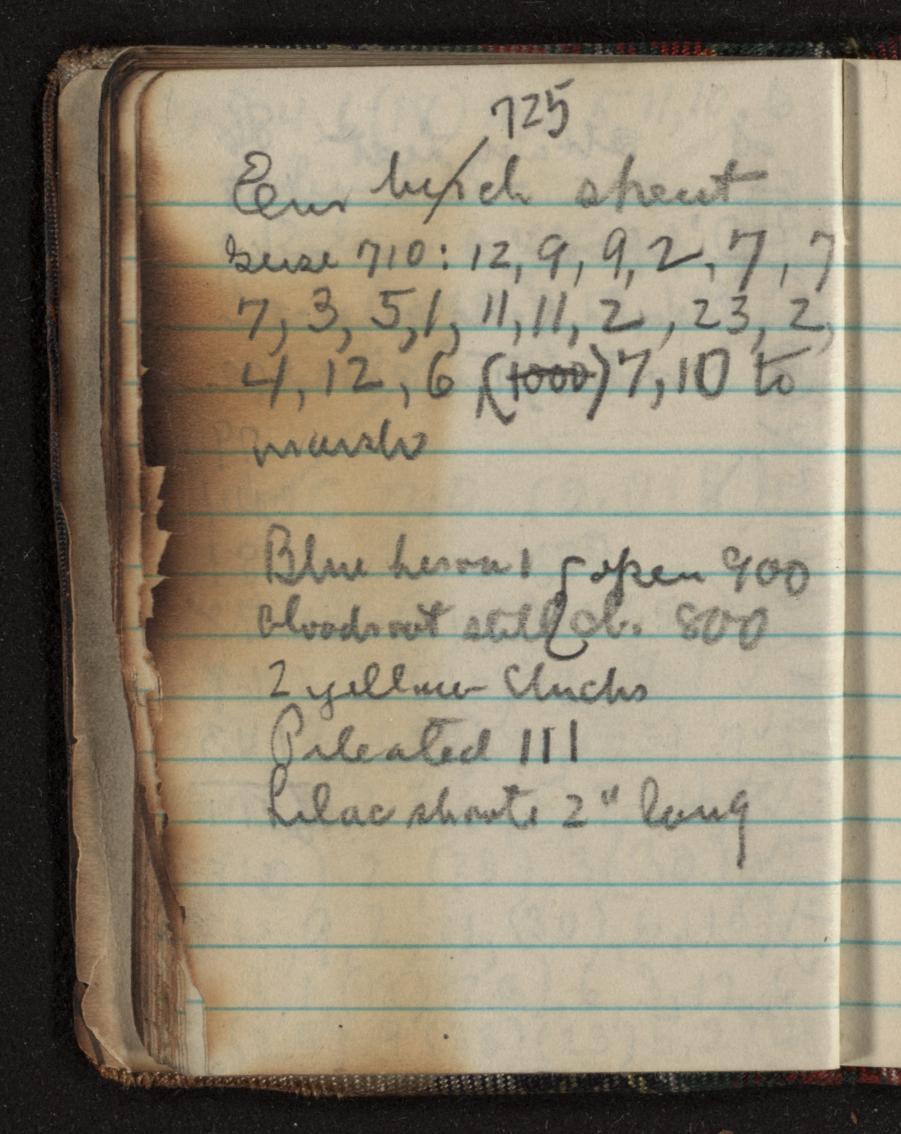 725
Eur birch spent
Geese 710: 12, 9, 9, 2, 7, 7
7, 3, 5, 1, 11, 11, 2, 23, 2,
4, 12, 6 (1000) 7, 10 to
marsh
Blue heron 1 open 900
bloodroot still cl. 800
2 yellow
Pileated 111
Lilac shoots 2" long